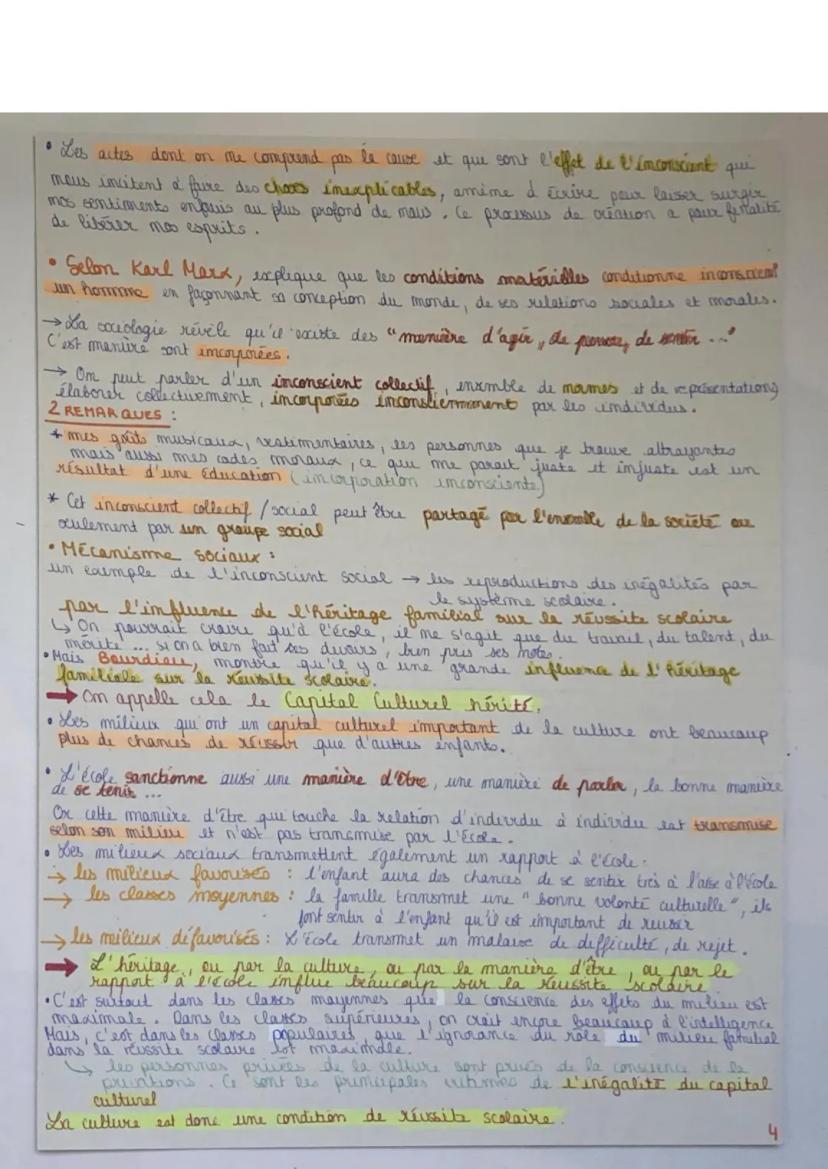 • Les actes dont on ne comprend pas la cause et que sont l'effet de l'inconscient qui
nous incitent à faire des choses inexplicables, amène à écrire pour laisser surgir
nos sentiments enfouis au plus profond de nous. Ce processus de création a pour finalité
de libérer nos esprits.
• Selon Karl Marx, explique que les conditions matérielles conditionne inconscient
un homme en façonnant sa conception du monde, de ses relations sociales et morales.
→ La sociologie révèle qu'il existe des "manière d'agir, de penser, de sentir ..."
C'est manière sont incorporées.
→ On peut parler d'un inconscient collectif, ensemble de normes et de représentations
élaborer collectivement, incorporées inconsciemment par les individus.
2 REMARQUES :
* mes goûts musicaux, vestimentaires, les personnes que je trouve attrayantes
mais aussi mes codes moraux, ce qui me parait juste et injuste est un
résultat d'une éducation (incorporation inconsciente)
* Cet inconscient collectif / social peut être partagé par l'ensemble de la société ou
seulement par un groupe social
• Mécanisme sociaux :
un exemple de l'inconscient social → les reproductions des inégalités par
le système scolaire.
par l'influence de l'héritage familial sur la réussite scolaire
↳ On pourrait croire qu'à l'école, il ne s'agit que du travail, du talent, du
mérite ... si on a bien fait ses devoirs, bien pris ses notes.
• Mais Bourdieu, montre qu'il y a une grande influence de l'héritage
familiale sur la réussite scolaire.
→ On appelle cela le Capital Culturel hérité.
• Les milieux qui ont un capital culturel important de la culture ont beaucoup
plus de chances de réussir que d'autres enfants.
• L'école sanctionne aussi une manière d'être, une manière de parler, la bonne manière
de se tenir ...
Or cette manière d'être qui touche la relation d'individu à individu est transmise
selon son milieu et n'est pas transmise par l'école.
• Les milieux sociaux transmettent également un rapport à l'école :
→ les milieux favorisés : l'enfant aura des chances de se sentir très à l'aise à l'école
→ les classes moyennes : la famille transmet une "bonne volonté culturelle", ils
font sentir à l'enfant qu'il est important de réussir
→ les milieux défavorisés : L'école transmet un malaise de difficulté, de rejet.
→ L'héritage, ou par la culture, ou par la manière d'être, ou par le
rapport à l'école influe beaucoup sur la réussite scolaire
• C'est surtout dans les classes moyennes que la conscience des effets du milieu est
maximale. Dans les classes supérieures, on croit encore beaucoup à l'intelligence
Mais, c'est dans les classes populaires, que l'ignorance du rôle du milieu familial
dans la réussite scolaire est maximale.
↳ les personnes privées de la culture sont privés de la conscience de la
privations. Ce sont les principales victimes de l'inégalité du capital
culturel
La culture est donc une condition de réussite scolaire.
4